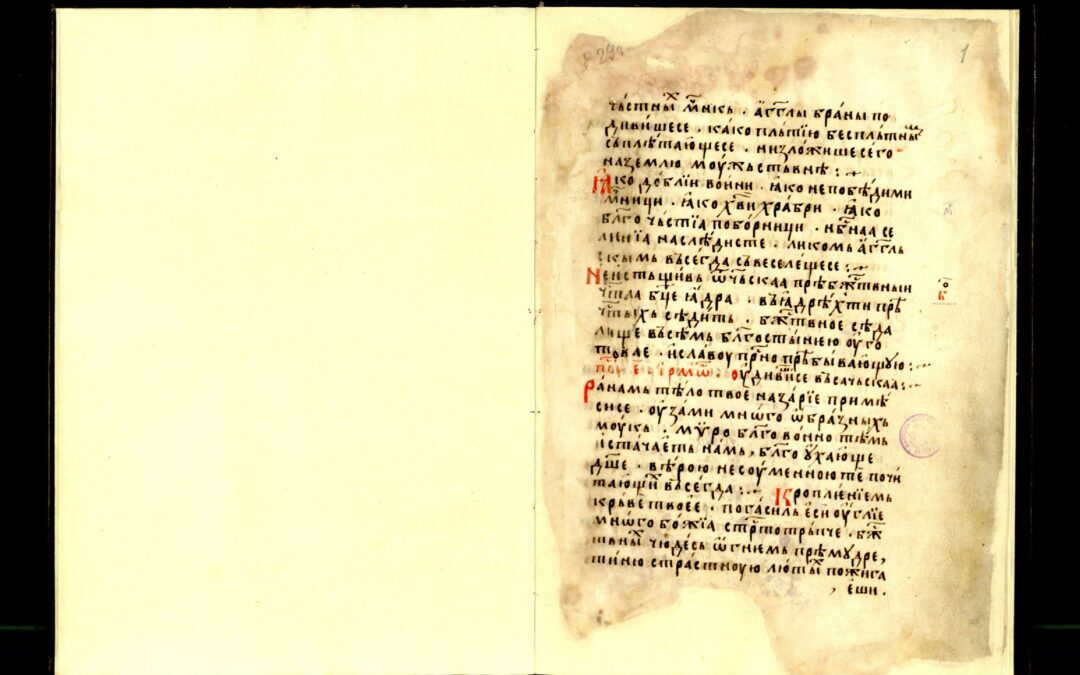 292
1
чьстны́х мⷱ҇нкь · а҆гг҃лы браны по
диви́шесе · ка́ко пль́тїю бесплътны́мь
съплѣта́ющесе · низложи́ше сего
на землю моу́жьствьнѣ :·
Ꙗ҆ко до́блїи во́ини · ꙗ҆ко непобѣ́дими
мⷱ҇нци · ꙗ҆ко хв҃и хра́бри · ꙗ҆ко
бл҃гочь́стїа побо́рници · нбⷭ҇наа се
ленїа наслѣ́дисте · ликомь а҆гг҃ль
скымь въсегда съвеселе́щесе :·
Неи҆стъщивь ѿч҃ьскаа прѣбжⷭ҇твныи
чтⷭ҇аа бц҃е ꙗ҆́дра · въ ꙗ҆дрѣ́х ти прѣ
чтⷭ҇ыхь сѣди́ть · бжⷭ҇твное сѣда
лище въсѣмь бл҃госты́нею оу҆го
товае · и҆ славоу прⷭ҇но прѣбыва́ющую :·
о
б
пѣⷭ҇ е҃ і҆рмѡⷭ҇ · оу҆диви́шесе въса́чьскаа :·
Ра́намь тѣ́ло твое наза́рїе примѣ
сисе · оу҆́зами мнѡ́го ѡ҆бра́зныхь
моу́кь · мѵ́ро бл҃гово́нно тѣ́мь
і҆стача́еть на́мь, бл҃гоу҆ха́юще
дш҃е · вѣ́рою несоуме́нною те почи
та́ющих въсегда :· Кропле́нїемь
кръ́ве твоее · погаси́ль еси оу҆́глїе
мно́гобо́жїа стрⷭ҇тотръпче · бжⷭ҇
твных чюде́сь ѡ҆гнемь прѣмудре,
ти́ню стра́стноую лю́тых пожига
, е҆ши .